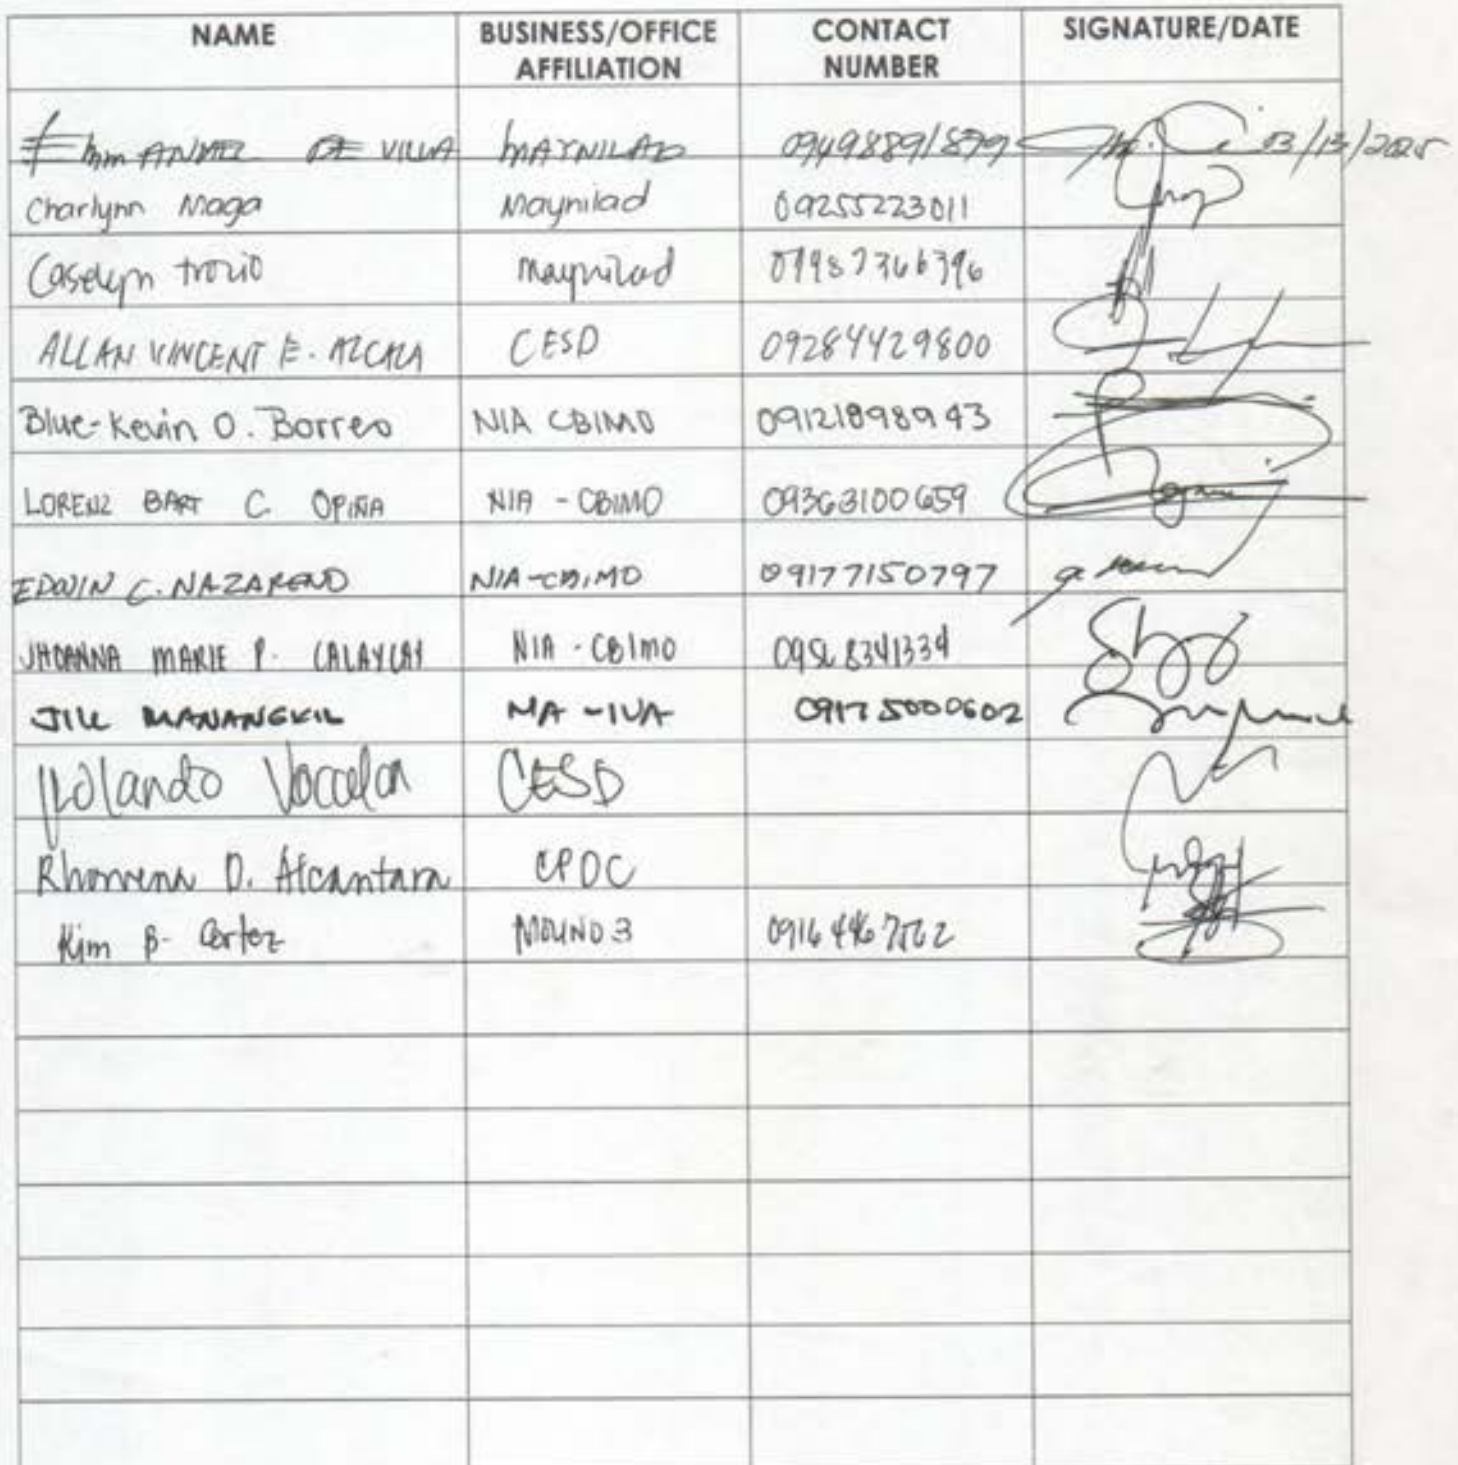 NAME BUSINESS/OFFICE AFFILIATION CONTACT NUMBER SIGNATURE/DATE
Emmanuel DE VILLA MAYNILAD 09498891899 03/13/2025
Charlynn Maga Maynilad 09255223011
Caselyn Maynilad
ALLAN VINCENT E. ALCALA CESD 09284429800
Blue-Kevin O. Borreo NIA CBIMO 09121898943
LORENZ BART C. OPIÑA NIA - CBIMO 09363100659
EDWIN C. NAZARENO NIA-CBIMO 09177150797
JHOANNA MARIE P. CALAYCAY NIA - CBIMO
JILL MANANGKIL 09175000602
Rolando CESD
D. Alcantara CPDC
Kim B. Cortez MOLINO 3